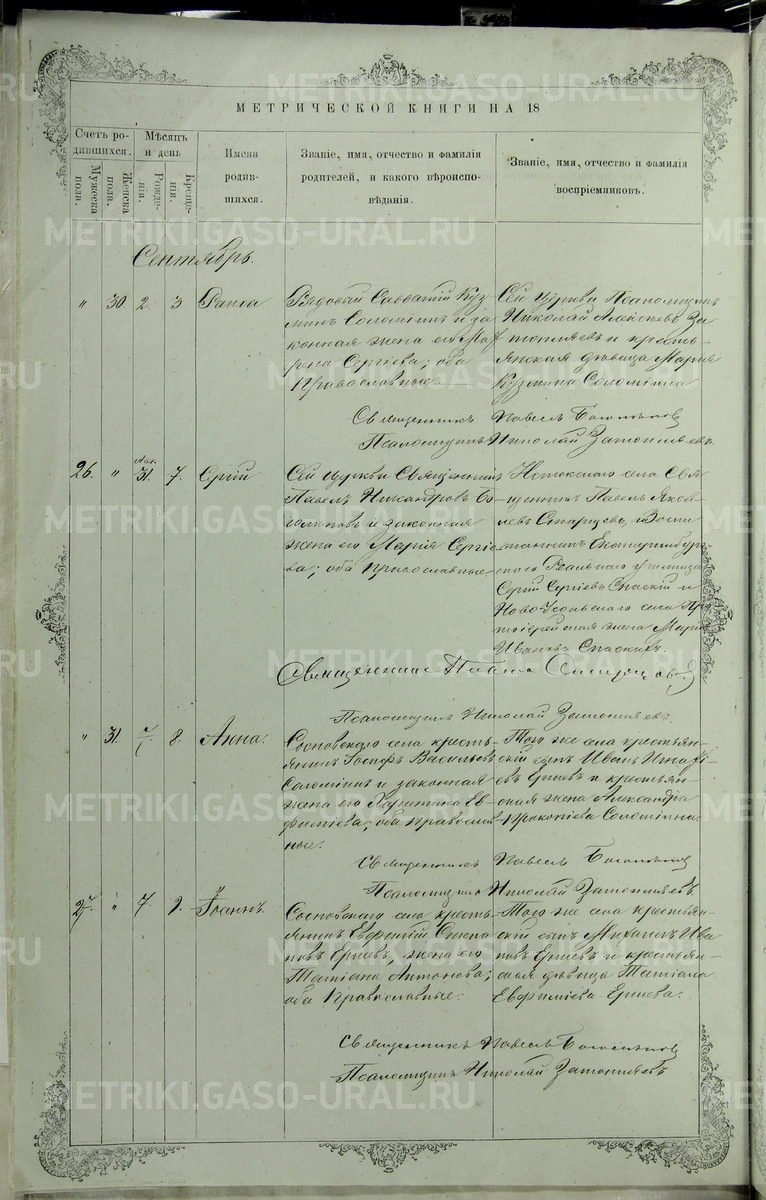 МЕТРИЧЕСКОЙ КНИГИ НА 18
Счетъ ро-
дившихся.
Мужеска
пола.
Женска
пола.
Мѣсяцъ
и день
Рожде-
нія.
Креще-
нія.
Имена
родив-
шихся.
Званіе, имя, отчество и фамилія
родителей, и какого вѣроиспо-
вѣданія.
Званіе, имя, отчество и фамилія
воспріемниковъ.
Сентябрь.
" 30 2. 3 Раиса
Рядовый Савватій Куз-
минъ Соломинъ и за-
конная жена его Мат
рона Сергіева; оба
православные.
Сей церкви Псаломщикъ
Николай Алексѣевъ За
топляевъ и кресть-
янская дѣвица Марія
Кузмина Соломина
Священникъ Павелъ
Псаломщикъ Николай Затопляевъ.
26. " Авг. 31. 7. Сергій
Сей церкви Священникъ
Павелъ Никандровъ Бо-
и законная
жена его Марія Сергіе-
ва; оба православные.
села Свя
щенникъ Павелъ Яков
левъ Старцевъ, Воспи
танникъ Екатеринбург-
скаго Реальнаго училища
Сергій Сергіевъ Спаскій и
Ново-Усольскаго села Про
тоіерейская жена Марія
Иванова Спаскихъ.
Священникъ Павелъ Старцевъ
Псаломщикъ Николай Затопляевъ.
" 31. 8. Анна.
Сосновскаго села кресть-
янинъ Іосифъ Васильевъ
Соломинъ и законная
жена его Харитина Ев-
фиміева; оба православ-
ные.
Того же села крестьян-
скій сынъ Иванъ
евъ Ершевъ и крестьян-
ская жена Александра
Прокопіева Соломина.
Священникъ Павелъ
Псаломщикъ Николай Затопляевъ
27. " 7. 9. Іоаннъ.
Сосновскаго села кресть-
янинъ Евфимій Степа
новъ Ершевъ, жена его
Татіана Антонова;
оба православные.
Того же села крестьян-
скій сынъ Михаилъ Ива
новъ Ершевъ и крестьян-
ская дѣвица Татіана
Евфиміева Ершева.
Священникъ Павелъ
Псаломщикъ Николай Затопляевъ
METRIKI.GASO-URAL.RU